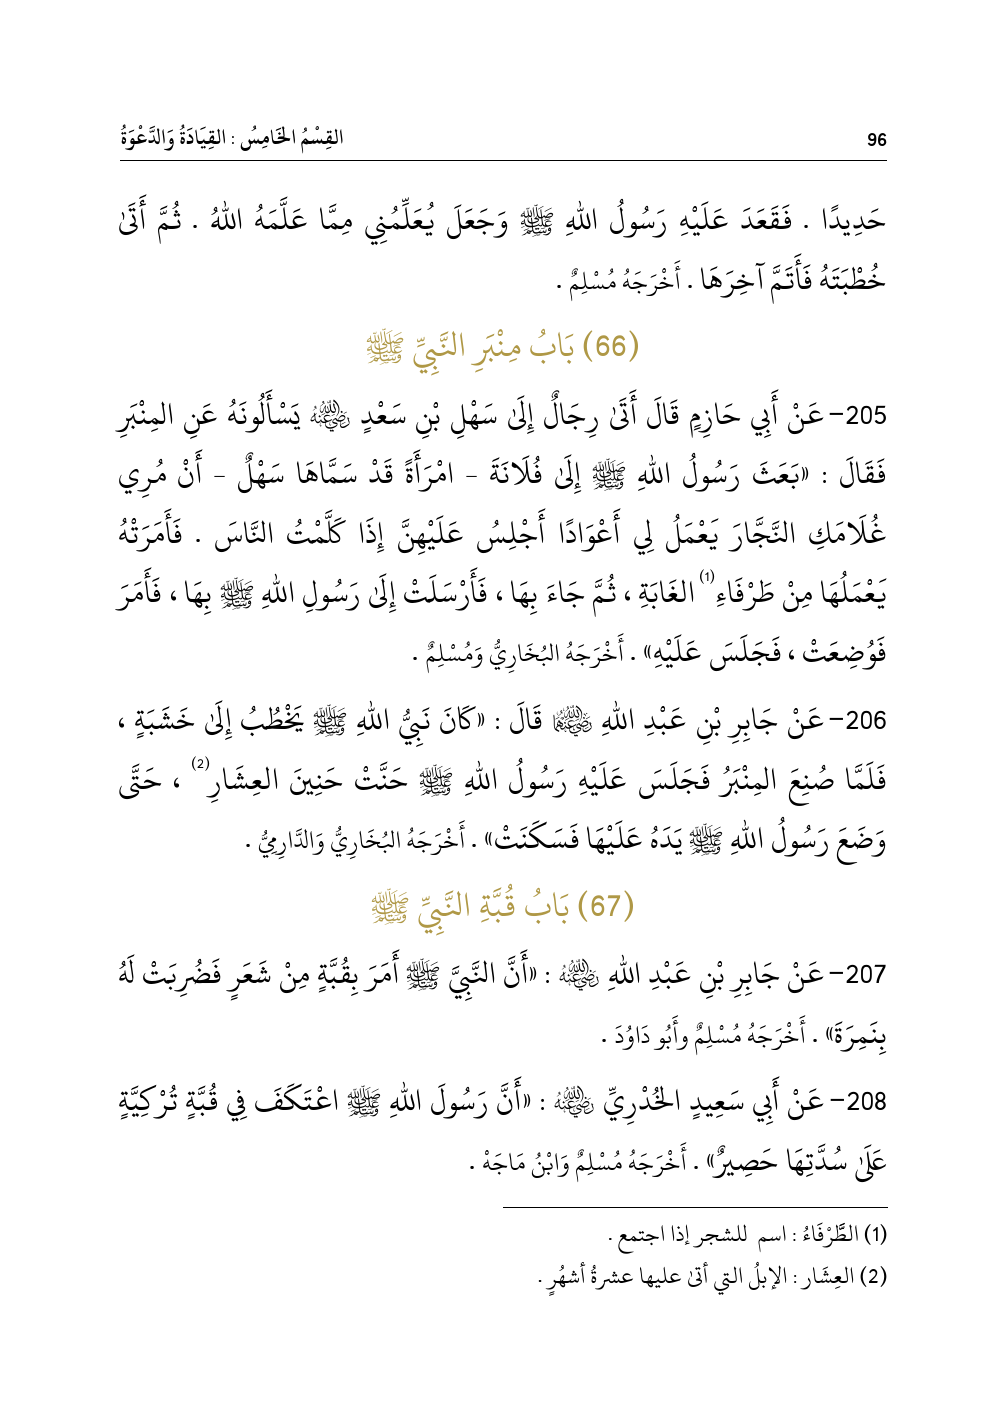 96
القِسْمُ الخَامِسُ : القِيَادَةُ وَالدَّعْوَةُ
حَدِيدًا . فَقَعَدَ عَلَيْهِ رَسُولُ اللهِ ﷺ وَجَعَلَ يُعَلِّمُنِي مِمَّا عَلَّمَهُ اللهُ . ثُمَّ أَتَىٰ
خُطْبَتَهُ فَأَتَمَّ آخِرَهَا . أَخْرَجَهُ مُسْلِمٌ .
(66) بَابُ مِنْبَرِ النَّبِيِّ ﷺ
205– عَنْ أَبِي حَازِمٍ قَالَ أَتَىٰ رِجَالٌ إِلَىٰ سَهْلِ بْنِ سَعْدٍ رضي الله عنه يَسْأَلُونَهُ عَنِ المِنْبَرِ
فَقَالَ : «بَعَثَ رَسُولُ اللهِ ﷺ إِلَىٰ فُلَانَةَ – امْرَأَةً قَدْ سَمَّاهَا سَهْلٌ – أَنْ مُرِي
غُلَامَكِ النَّجَّارَ يَعْمَلُ لِي أَعْوَادًا أَجْلِسُ عَلَيْهِنَّ إِذَا كَلَّمْتُ النَّاسَ . فَأَمَرَتْهُ
يَعْمَلُهَا مِنْ طَرْفَاءِ(1) الغَابَةِ ، ثُمَّ جَاءَ بِهَا ، فَأَرْسَلَتْ إِلَىٰ رَسُولِ اللهِ ﷺ بِهَا ، فَأَمَرَ
فَوُضِعَتْ ، فَجَلَسَ عَلَيْهِ» . أَخْرَجَهُ البُخَارِيُّ وَمُسْلِمٌ .
206– عَنْ جَابِرِ بْنِ عَبْدِ اللهِ رضي الله عنهما قَالَ : «كَانَ نَبِيُّ اللهِ ﷺ يَخْطُبُ إِلَىٰ خَشَبَةٍ ،
فَلَمَّا صُنِعَ المِنْبَرُ فَجَلَسَ عَلَيْهِ رَسُولُ اللهِ ﷺ حَنَّتْ حَنِينَ العِشَارِ(2) ، حَتَّى
وَضَعَ رَسُولُ اللهِ ﷺ يَدَهُ عَلَيْهَا فَسَكَنَتْ» . أَخْرَجَهُ البُخَارِيُّ وَالدَّارِمِيُّ .
(67) بَابُ قُبَّةِ النَّبِيِّ ﷺ
207– عَنْ جَابِرِ بْنِ عَبْدِ اللهِ رضي الله عنه : «أَنَّ النَّبِيَّ ﷺ أَمَرَ بِقُبَّةٍ مِنْ شَعَرٍ فَضُرِبَتْ لَهُ
بِنَمِرَةَ» . أَخْرَجَهُ مُسْلِمٌ وأَبُو دَاوُدَ .
208– عَنْ أَبِي سَعِيدٍ الخُدْرِيِّ رضي الله عنه : «أَنَّ رَسُولَ اللهِ ﷺ اعْتَكَفَ فِي قُبَّةٍ تُرْكِيَّةٍ
عَلَىٰ سُدَّتِهَا حَصِيرٌ» . أَخْرَجَهُ مُسْلِمٌ وَابْنُ مَاجَهْ .
(1) الطَّرْفَاءُ : اسم للشجر إذا اجتمع .
(2) العِشَار : الإبلُ التي أتىٰ عليها عشرةُ أشهُرٍ .